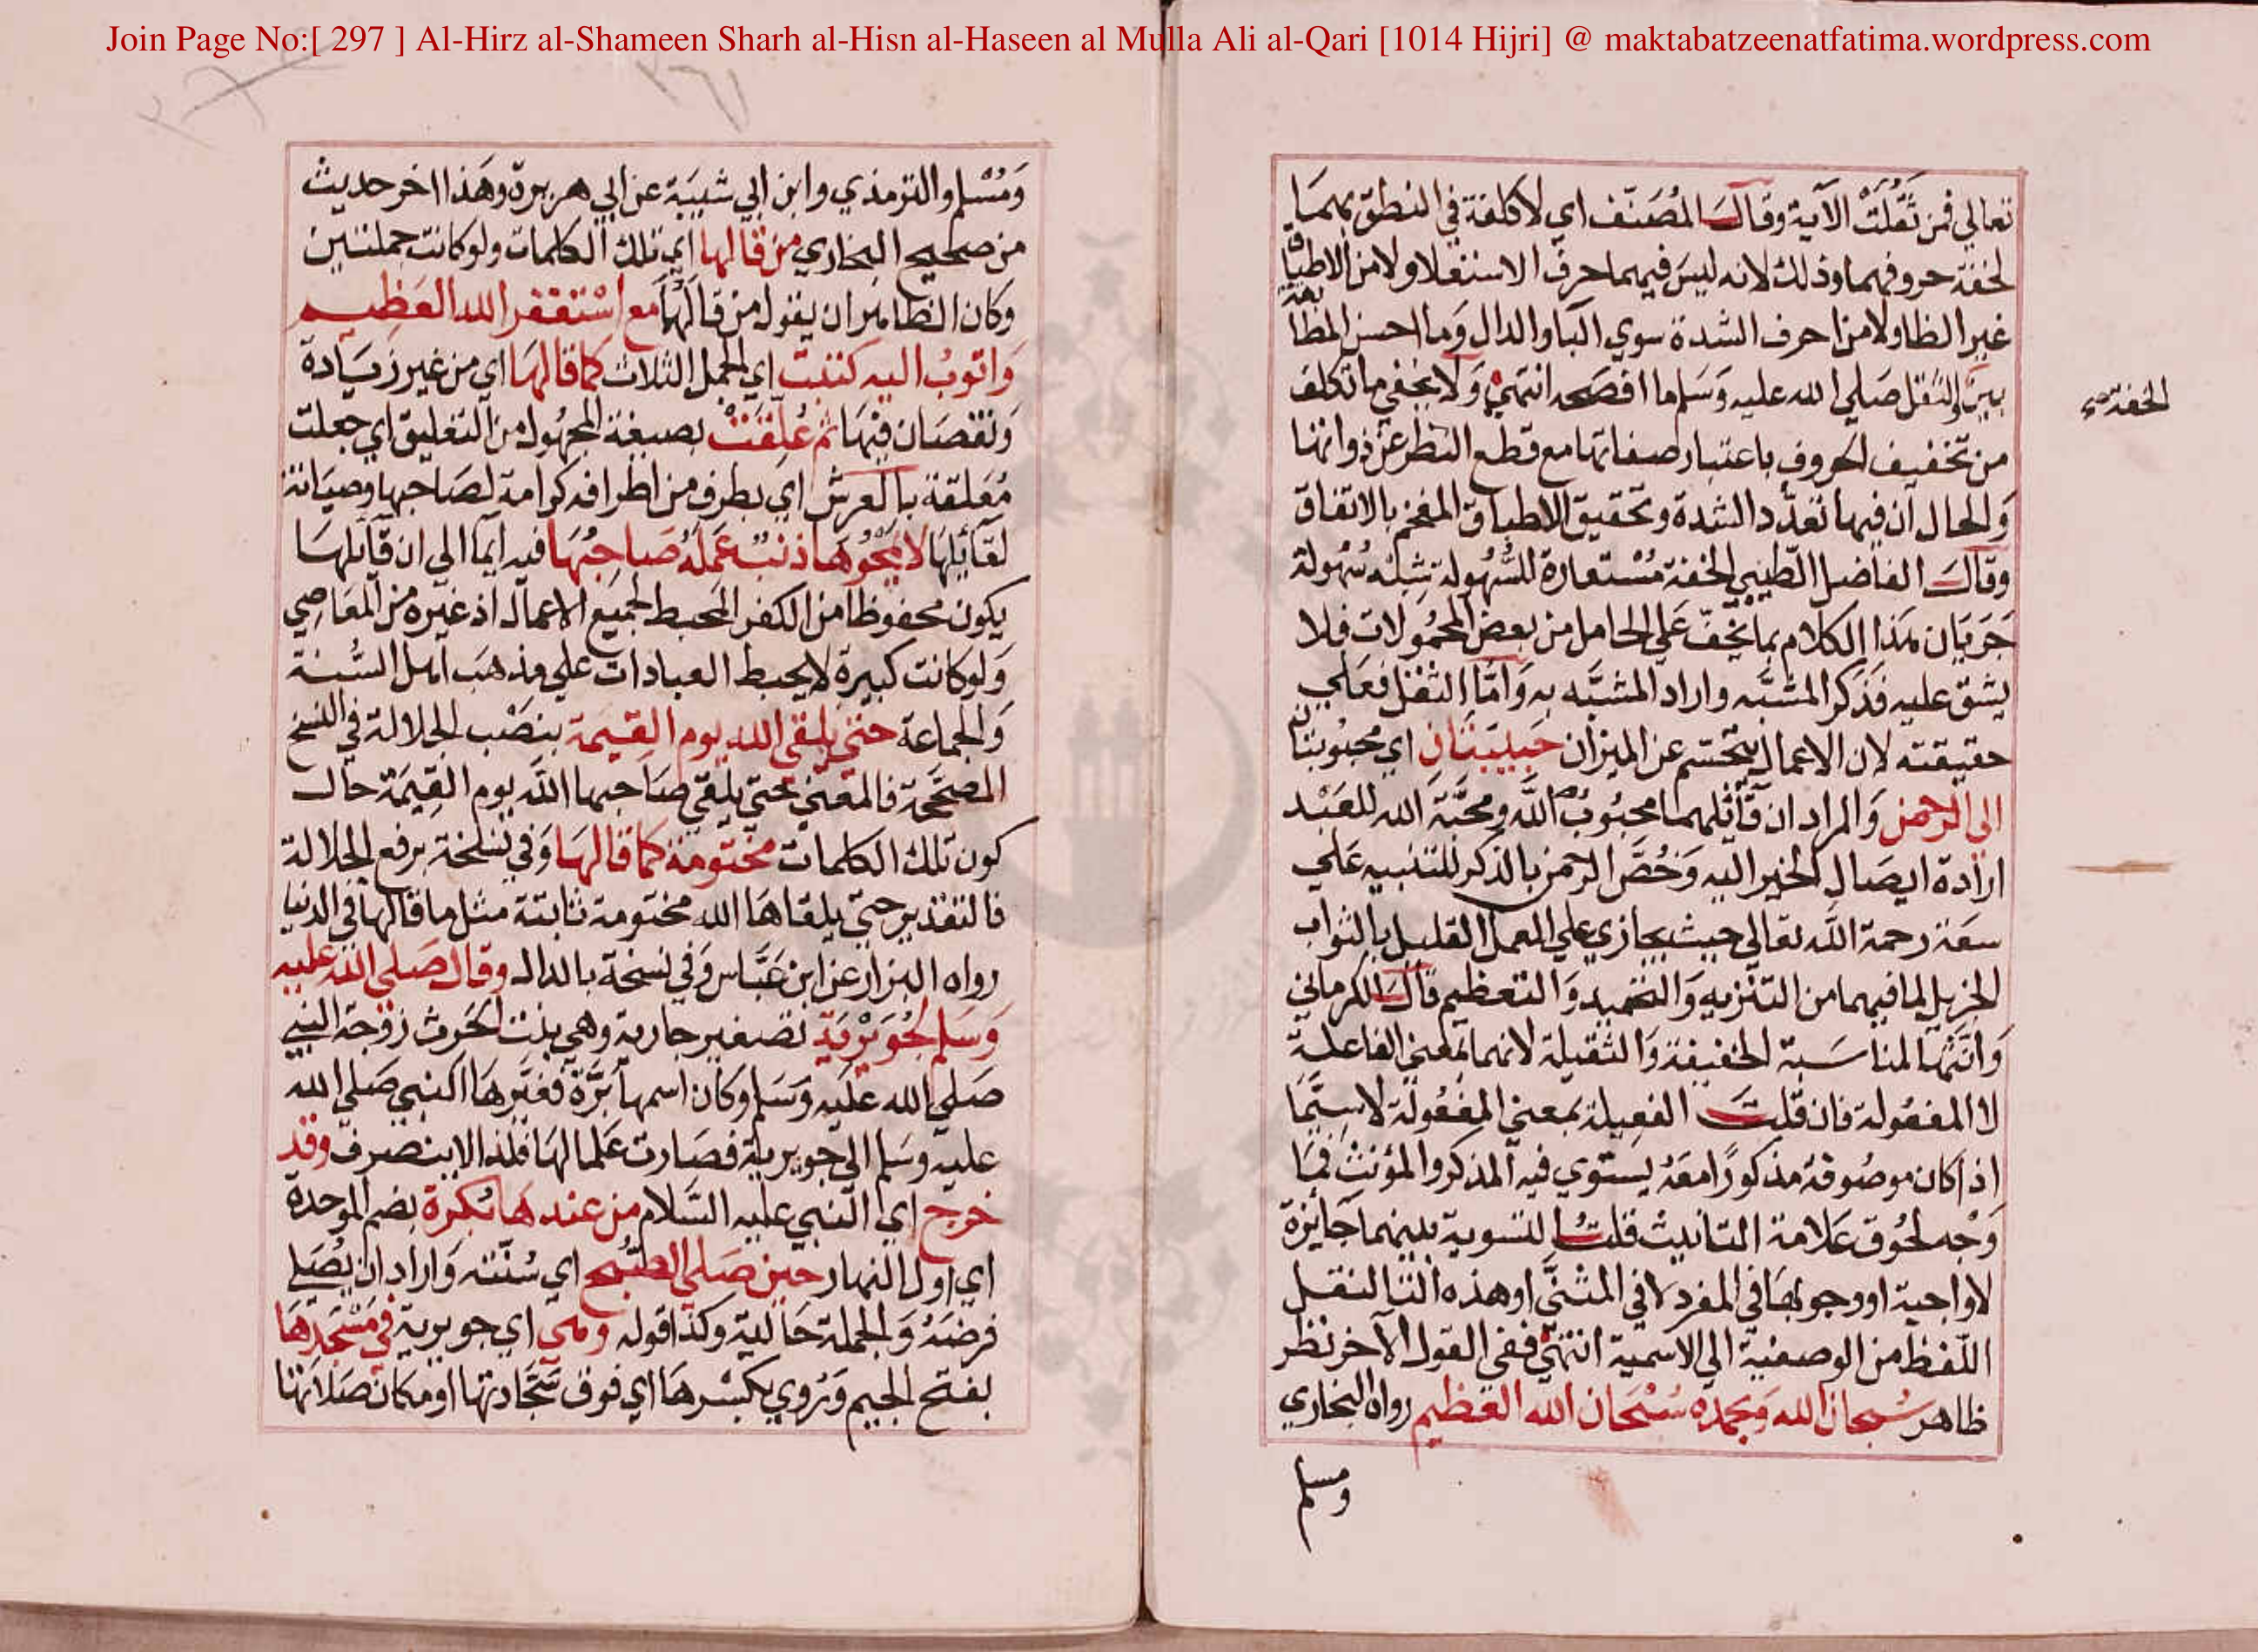 Join Page No:[ 297 ] Al-Hirz al-Shameen Sharh al-Hisn al-Haseen al Mulla Ali al-Qari [1014 Hijri] @ maktabatzeenatfatima.wordpress.com
تعالي فمن ثقلت الآية وقال المصنف اي لا كلفة في النطق بهما
لخفة حروفهما وذلك لانه ليس فيهما حرف الاستعلا ولا من الاطباق
غير الظا ولا من احرف الشدة سوي البا والدال وما احسن المطابقة
بين والثقل صلي الله عليه وسلم ما افصحه انتهي ولا يخفي ما تكلف
الخفة صح
من تخفيف الحروف باعتبار صفاتها مع قطع النظر عن ذواتها
والحال ان فيها تعدد الشدة وتحقيق الاطباق المفخم بالاتفاق
وقال الفاضل الطيبي الخفة مستعارة للسهولة شبه سهولة
جريان هذا الكلام بما يخف علي الحامل من بعض المحمولات فلا
يشق عليه فذكر المشبه واراد المشبه به واما الثقل فعلي
حقيقته لان الاعمال تتجسم عن الميزان حبيبتان اي محبوبتان
الى الرحمن والمراد ان قائلهما محبوب الله ومحبة الله للعبد
ارادة ايصال الخير اليه وخص الرحمن بالذكر للتنبيه علي
سعة رحمة الله تعالى حيث يجازي علي العمل القليل بالثواب
الجزيل لما فيهما من التنزيه والتحميد والتعظيم قال الكرماني
وانثها لمناسبة الخفيفة والثقيلة لانهما بمعني الفاعلة
لا المفعولة فان قلت الفعيلة بمعني المفعولة لا سيما
اذا كان موصوفه مذكورا معه يستوي فيه المذكر والمؤنث فما
وجه لحوق علامة التانيث قلت التسوية بينهما جائزة
لا واجبة او وجوبها في المفرد لا في المثنى او هذه التا لنقل
اللفظ من الوصفية الي الاسمية انتهي ففي القول الآخر نظر
ظاهر سبحان الله وبحمده سبحان الله العظيم رواه البخاري
ومسلم
ومسلم والترمذي وابن ابي شيبة عن ابي هريرة وهذا اخر حديث
من صحيح البخاري من قالها اي تلك الكلمات ولو كانت جملتين
وكان الظاهر ان يقول من قالهما مع استغفر الله العظيم
واتوب اليه كتبت اي الجمل الثلاث كما قالها اي من غير زيادة
ونقصان فيها ثم علقت بصيغة المجهول من التعليق اي جعلت
معلقة بالعرش اي بطرف من اطرافه كرامة لصاحبها وصيانة
لقائلها لا يمحوها ذنب عمله صاحبها فيه ايما الي ان قائلها
يكون محفوظا من الكفر المحبط لجميع الاعمال اذ غيره من المعاصي
ولو كانت كبيرة لا يحبط العبادات علي مذهب اهل السنة
والجماعة حتي يلقى الله يوم القيمة بنصب الجلالة في النسخ
المصححة فالمعني حتي يلقي صاحبها الله يوم القيمة حال
كون تلك الكلمات مختومة كما قالها وفي نسخة برفع الجلالة
فالتقدير حتي يلقاها الله مختومة ثابتة مثل ما قالها في الدنيا
رواه البزار عن ابن عباس وفي نسخة بالدال وقال صلى الله عليه
وسلم لجويرية تصغير جارية وهي بنت الحرث زوجة النبي
صلي الله عليه وسلم وكان اسمها برة فغيرها النبي صلي الله
عليه وسلم الي جويرية فصارت علما لها فلذا لا ينصرف وقد
خرج اي النبي عليه السلام من عندها بكرة بضم الموحدة
اي اول النهار حين صلى الصبح اي سنته واراد ان يصلي
فرضه والجملة حالية وكذا قوله وهي اي جويرية في مسجدها
بفتح الجيم وروي بكسرها اي فوق سجادتها او مكان صلاتها